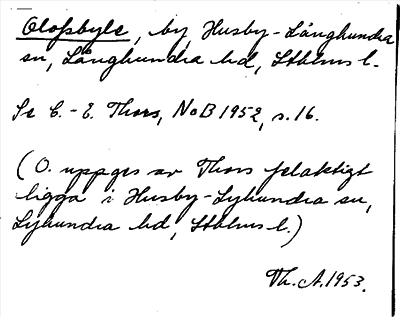 Olofsbyle, by, Husby-Långhundra
sn, Långhundra hd, Sthlms l.
Se C.-E. Thors, NoB 1952, s. 16.
(O. uppges av Thors felaktigt
ligga i Husby-Lyhundra sn,
Lyhundra hd, Sthlms l.)
Th. A. 1953.